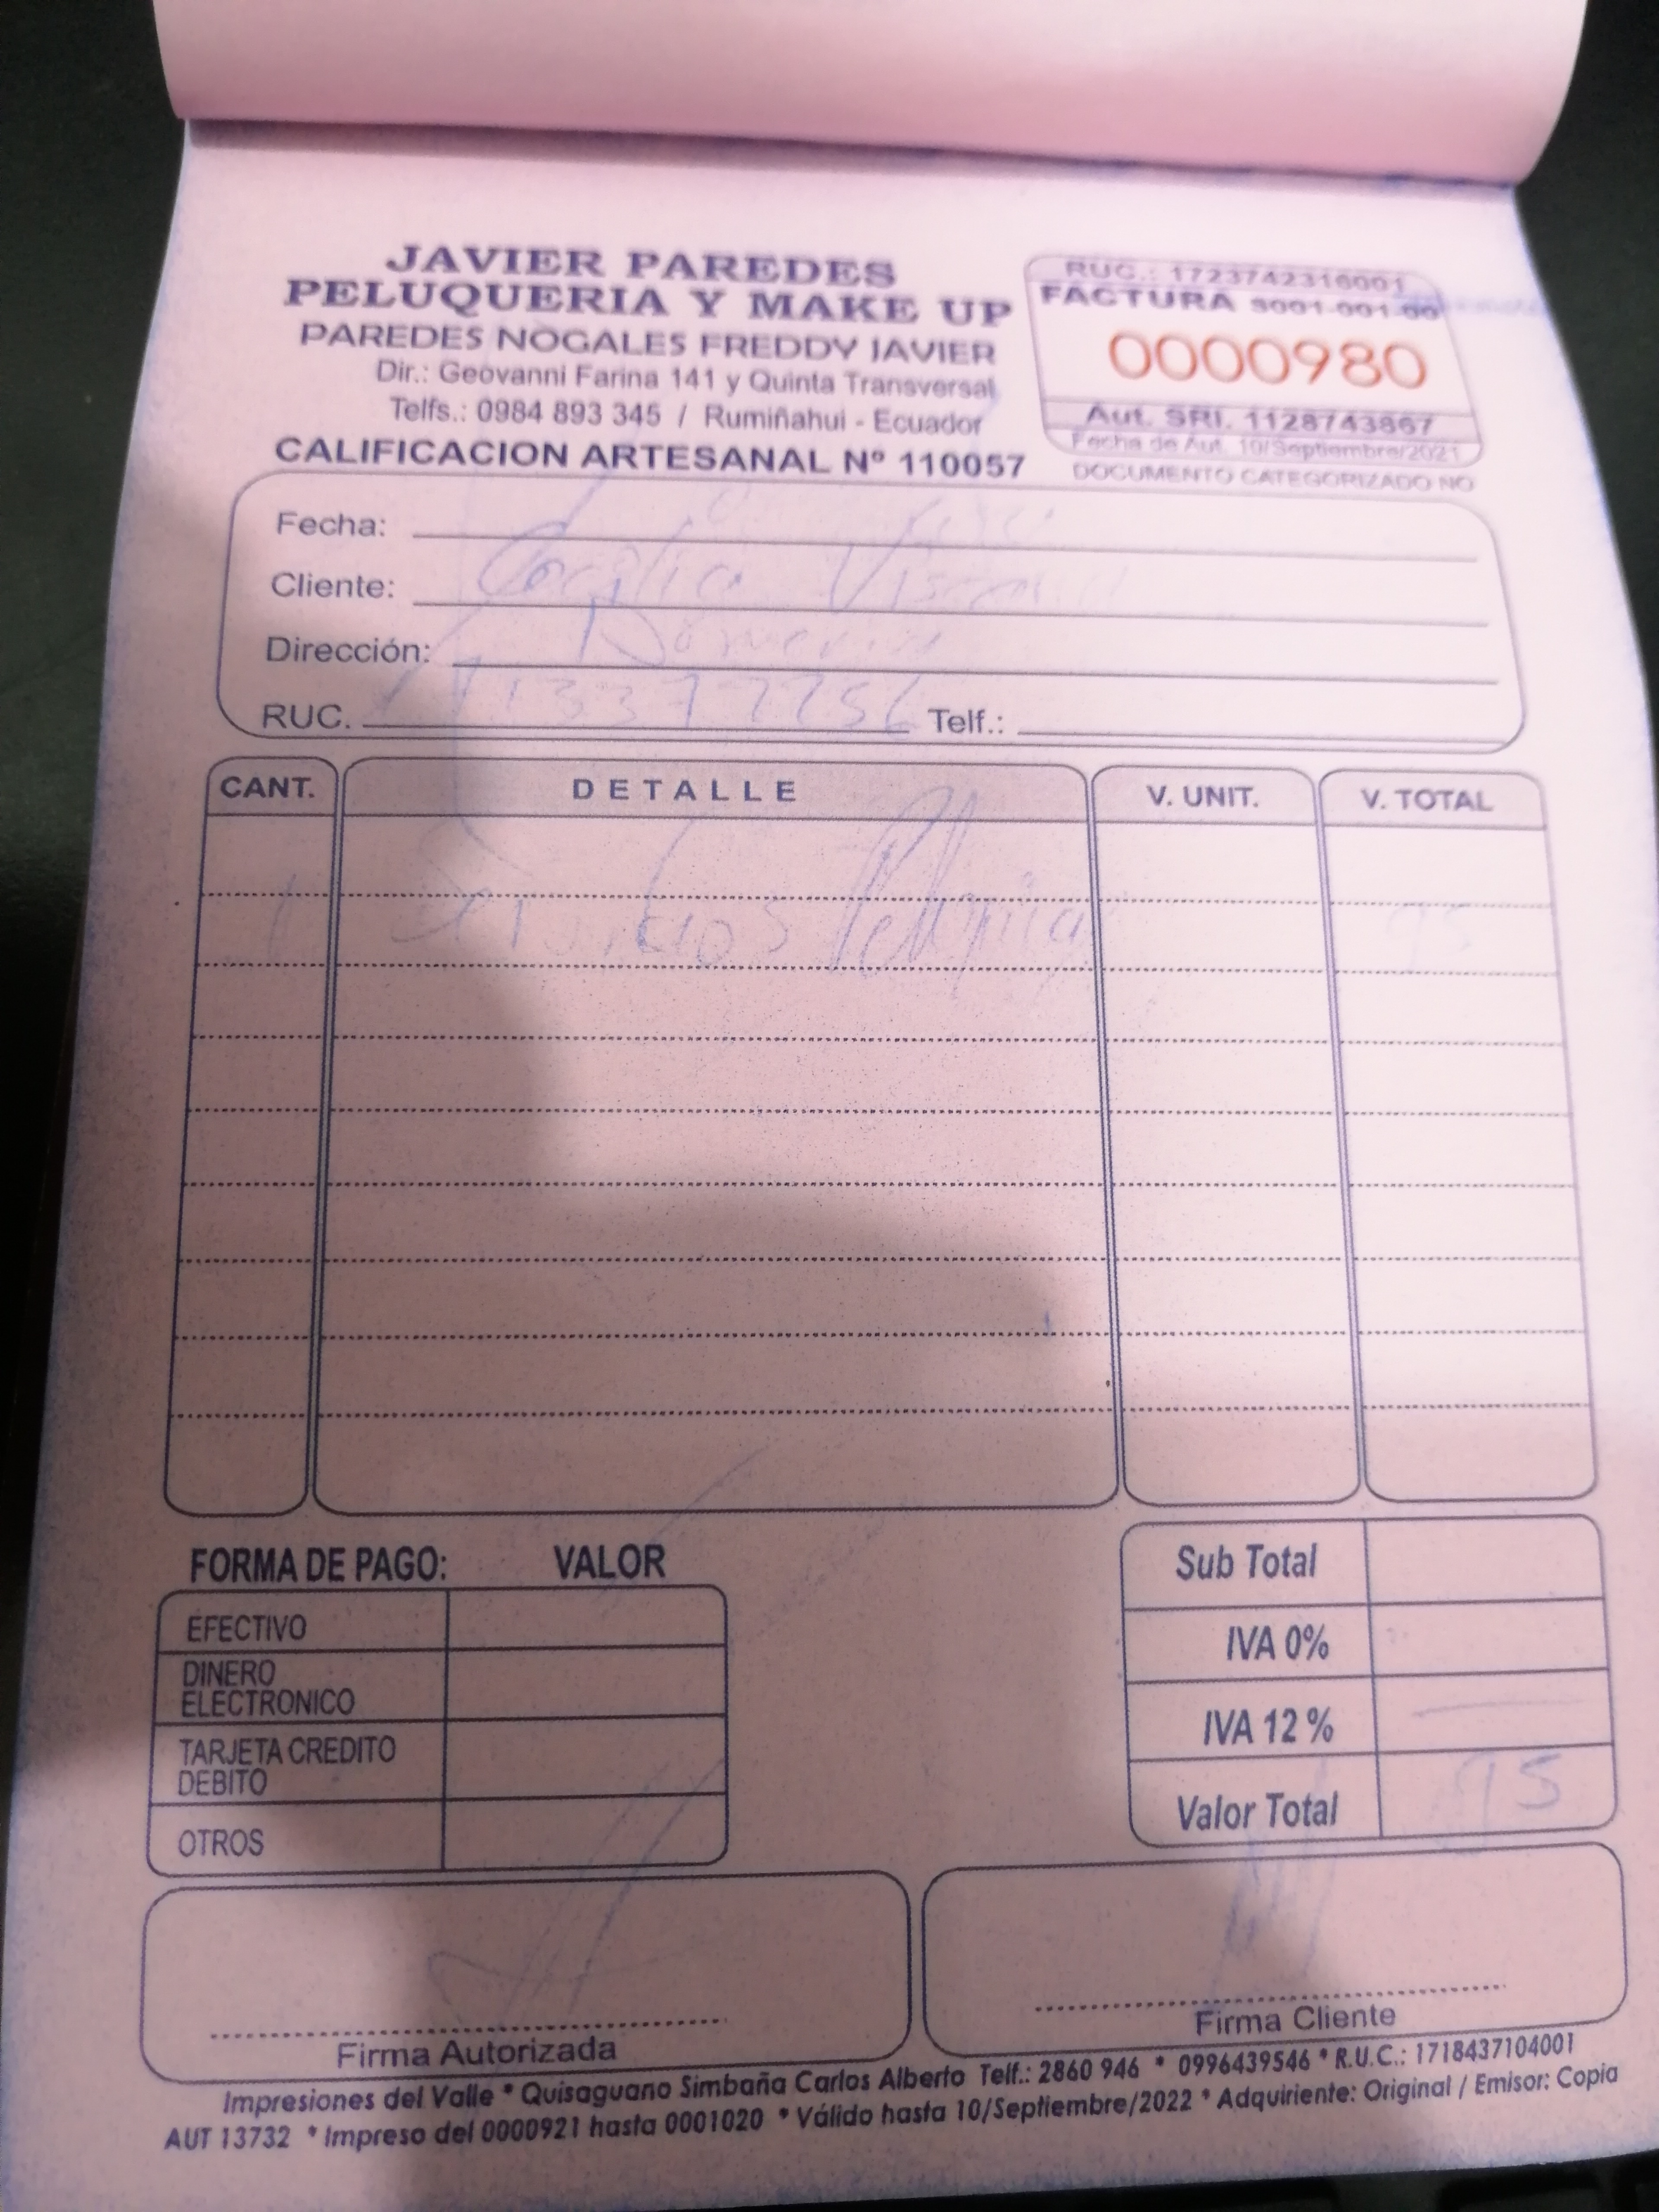 JAVIER PAREDES
PELUQUERIA Y MAKE UP
PAREDES NOGALES FREDDY JAVIER
Dir.: Geovanni Farina 141 y Quinta Transversal
Telfs.: 0984 893 345 / Rumiñahui - Ecuador
CALIFICACION ARTESANAL Nº 110057
RUC.: 1723742316001
FACTURA S001-001-00
0000980
Aut. SRI. 1128743867
Fecha de Aut. 10/Septiembre/2021
DOCUMENTO CATEGORIZADO NO
Fecha:
Cliente: Cecilia
Dirección:
RUC. Telf.:
CANT. DETALLE V. UNIT. V. TOTAL
1 Servicios
FORMA DE PAGO: VALOR
EFECTIVO
DINERO
ELECTRONICO
TARJETA CREDITO
DEBITO
OTROS
Sub Total
IVA 0%
IVA 12 % —
Valor Total
Firma Autorizada
Firma Cliente
Impresiones del Valle * Quisaguano Simbaña Carlos Alberto Telf.: 2860 946 * 0996439546 * R.U.C.: 1718437104001
AUT 13732 * Impreso del 0000921 hasta 0001020 * Válido hasta 10/Septiembre/2022 * Adquiriente: Original / Emisor: Copia